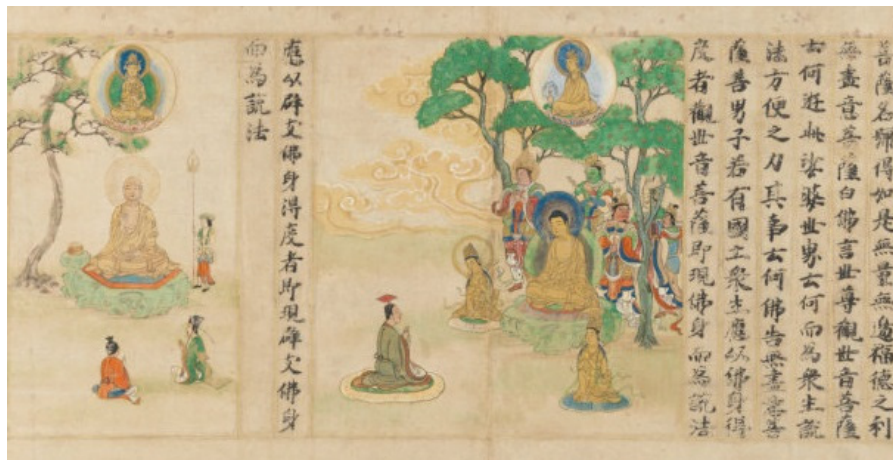 菩薩名号得如是無量無邊福德之利
無盡意菩薩白佛言世尊觀世音菩薩
云何遊此娑婆世界云何而為衆生説
法方便之力其事云何佛告無盡意菩
薩善男子若有國土衆生應以佛身得
度者觀世音菩薩即現佛身而為説法
應以辟支佛身得度者即現辟支佛身
而為説法